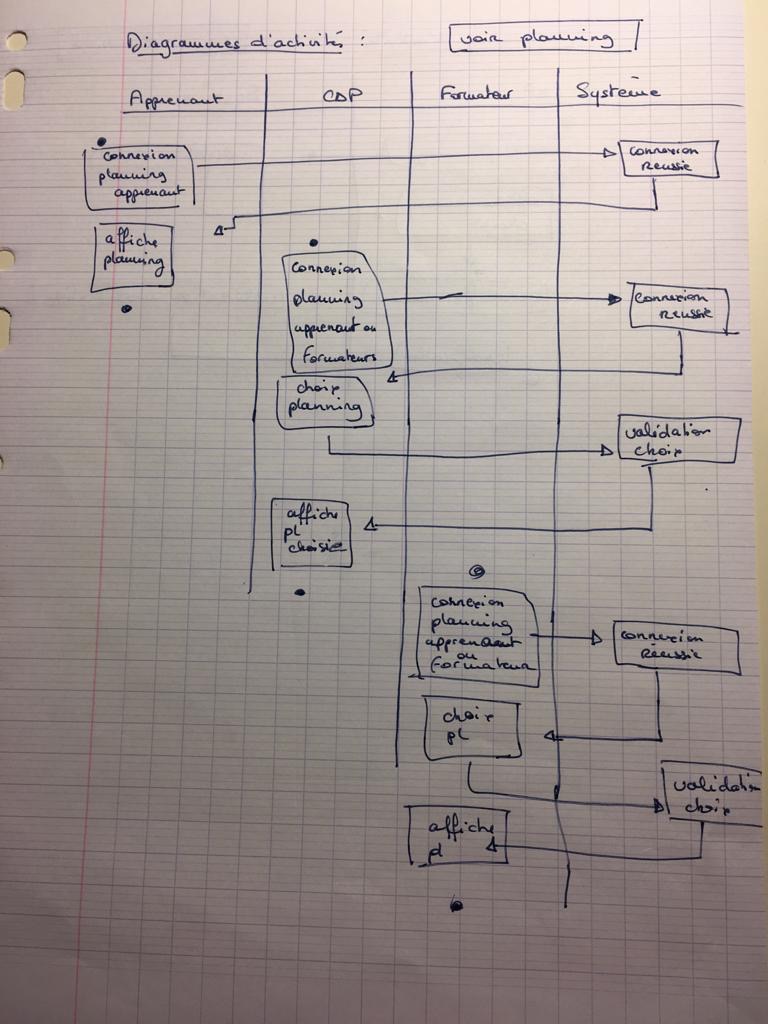 Diagrammes d'activités :
voir planning
Apprenant
CDP
Formateur
Système
connexion
planning
apprenant
connexion
reussie
affiche
planning
connexion
planning
apprenant ou
Formateurs
connexion
reussie
choix
planning
validation
choix
affiche
pl
choisie
connexion
planning
apprenant
ou
Formateur
connexion
réussie
choix
pl
validation
choix
affiche
pl